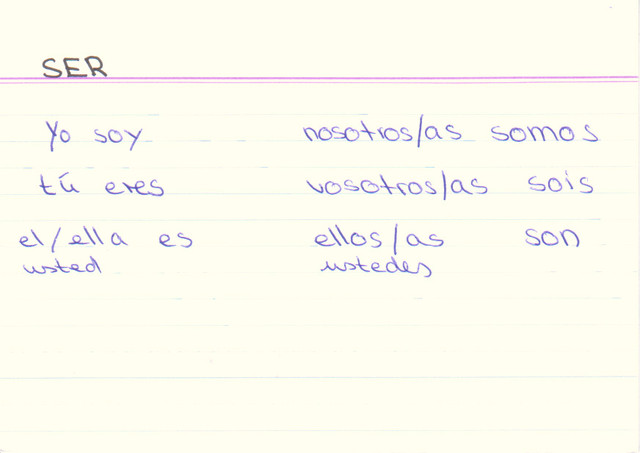 SER
Yo soy nosotros/as somos
tú eres vosotros/as sois
el/ella es ellos/as son
usted ustedes